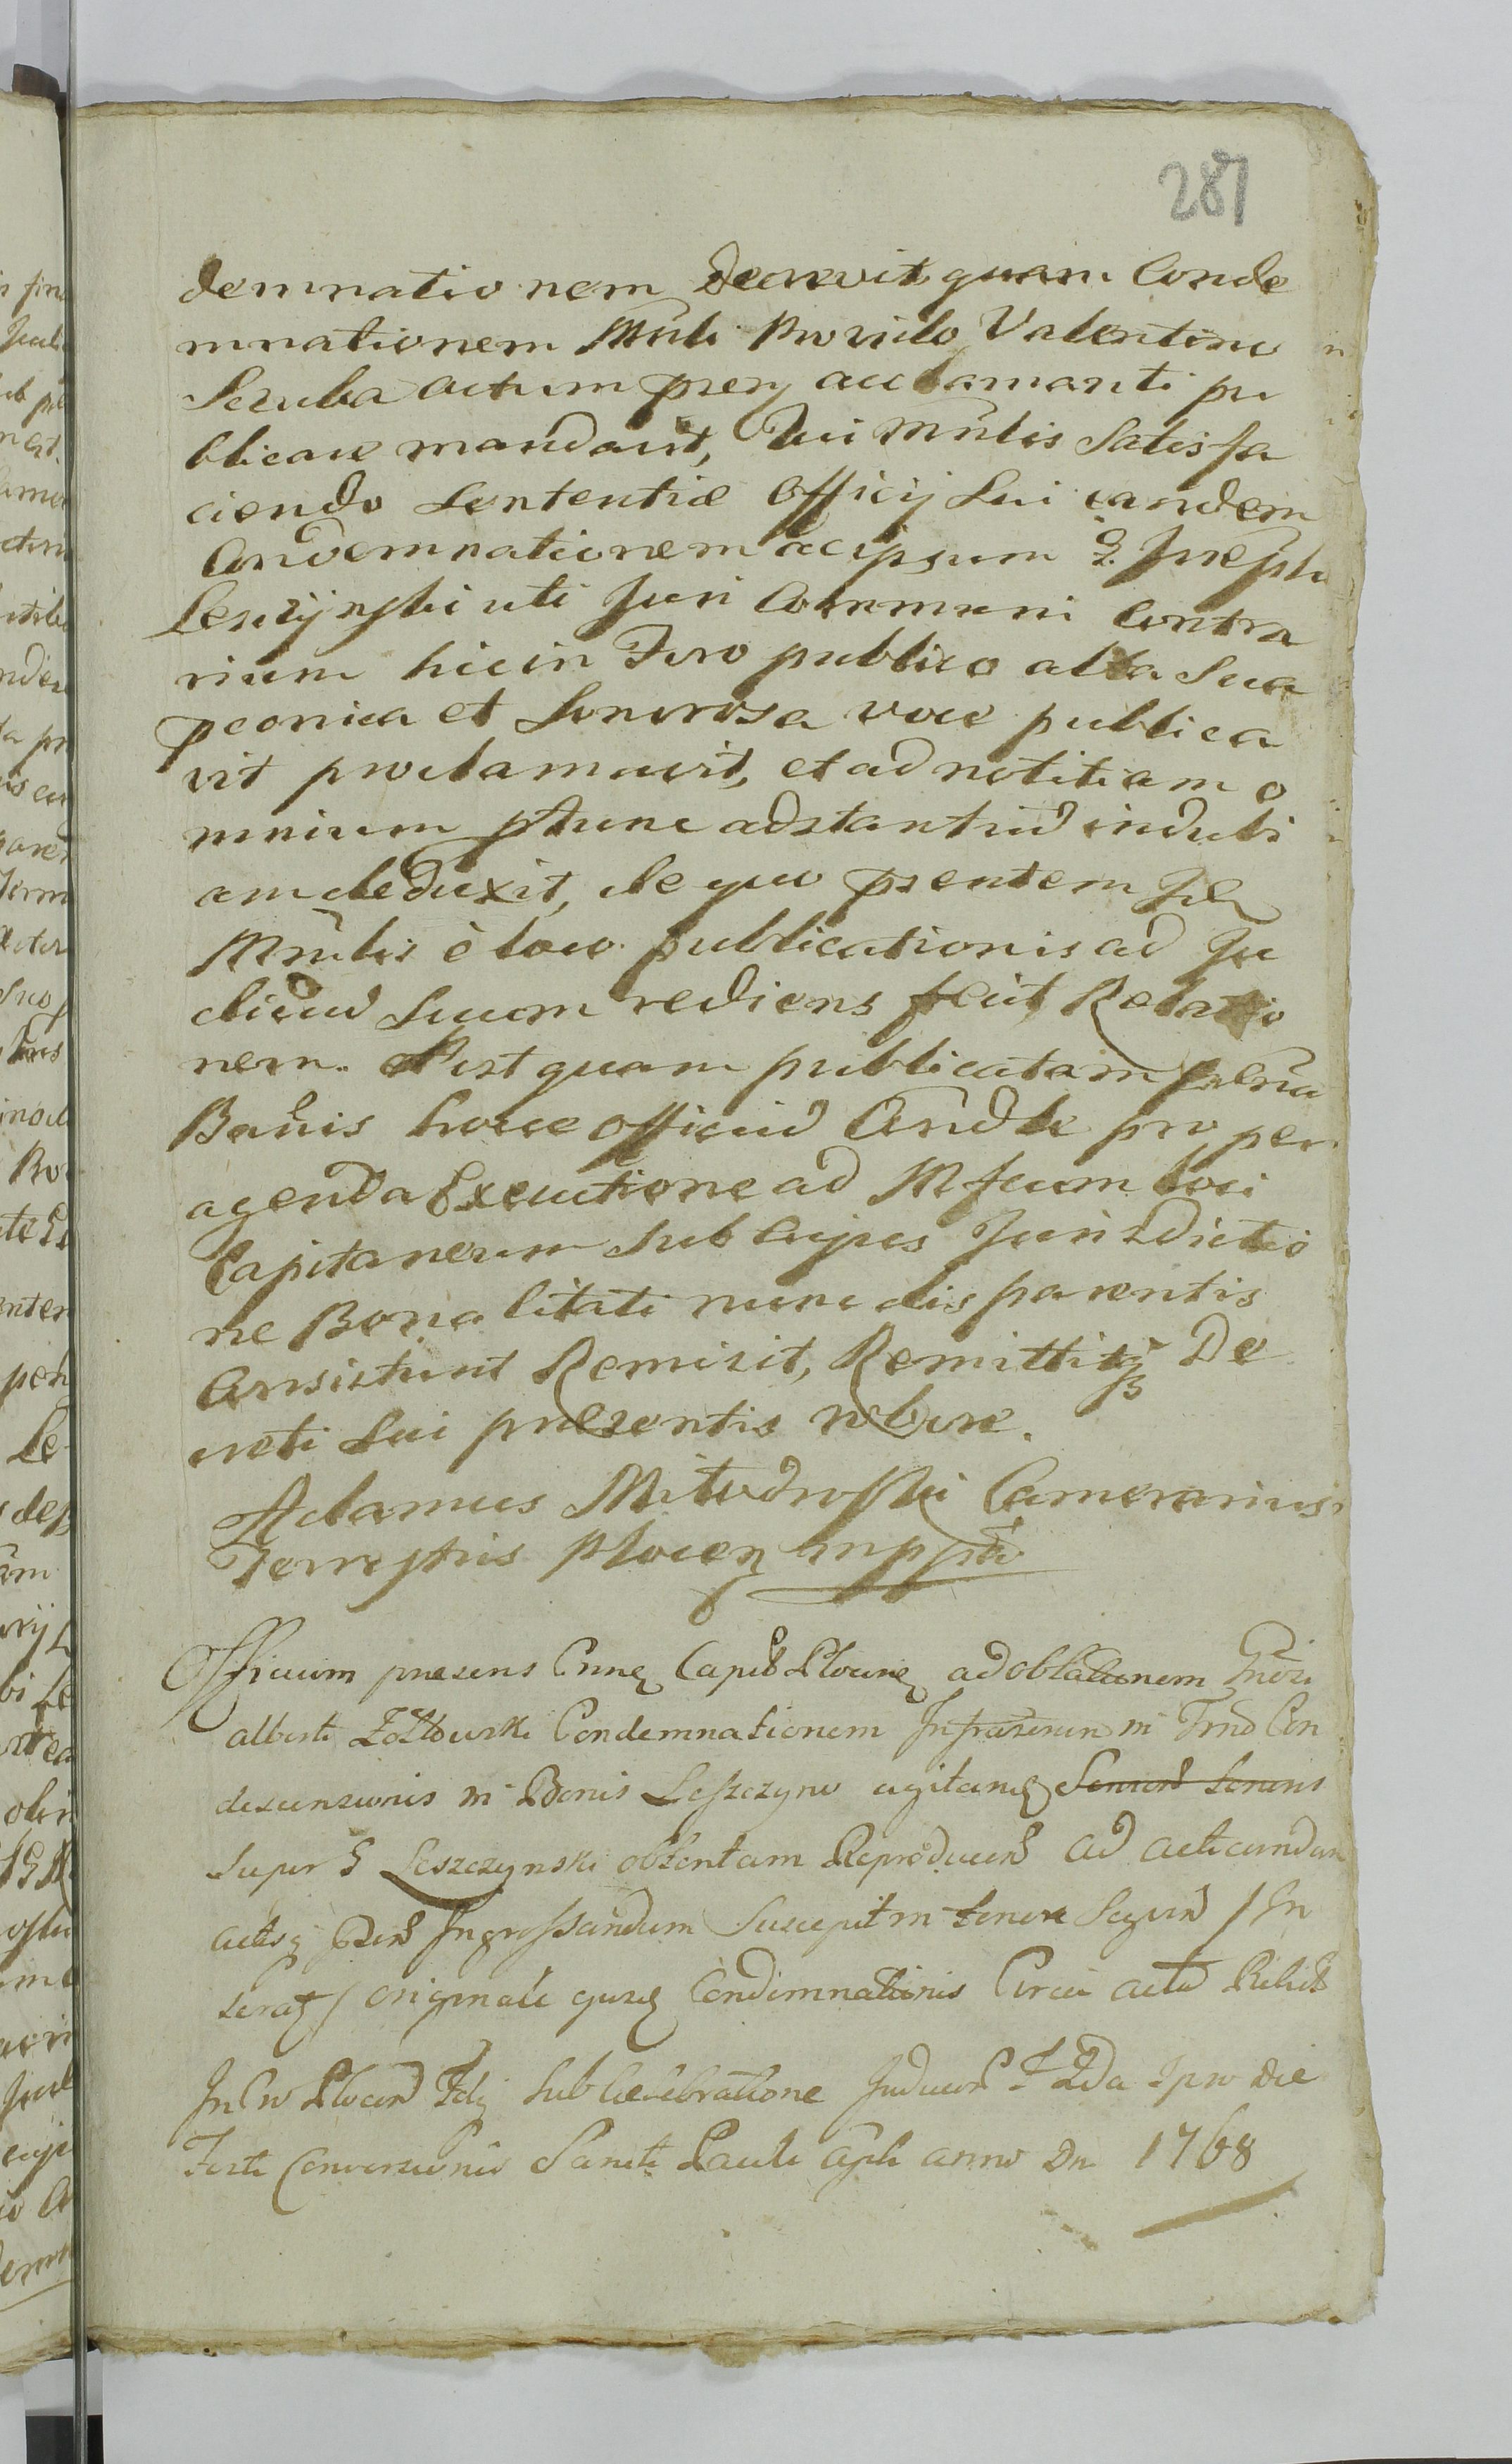 281
demnationem Decrevit quam Conde
mnationem Mnli Provido Valentino
Scruba actum pns acclamanti pu
blicare mandavit, Qui Mnlis Satisfa
ciendo Sententiæ Officij Sui eandem
Condemnationem ac ipsum G.
Leszczynski uti Juri Communi Contra
rium hic in Foro publico alta Sua
peonica et Sonorosa voce publica
vit proclamavit, et ad notitiam o
mnium ptunc adstantiũ indubi
am deduxit, de quo psentem Idem
Mnlis è loco publicationis ad Ju
diciũ Suum rediens fecit Relatio
nem. Post quam publicatam
Bannis hocce Officiũ Condle pro per
agenda Executione ad Mfcum loci
Capitaneum sub cujus Jurisdictio
ne Bona litati nunc disparentis
Consistunt Remisit, Remittitq De
creti Sui præsentis robore.
Adamus Mitodroski Camerarius
Terrestris Plocen mpp
Officium præsens Cnne Capit Plocne ad oblationem Gnosi
alberti Żołtowski Condemnationem Infrascrip in Trno Con
descensionis in Bonis Leszczyno agitane
super G Leszczynski obtentam Reproducen ad acticandum
actisq psen Ingrossandum Suscepit in tenore Sequen / In
serat / originale quoq Condemnationis Circa acta Relict
In Cro Plocen Fdj sub celebratione Judicior ipso Die
Festi Conversionis Sancti Pauli Apli anno Dn 1768